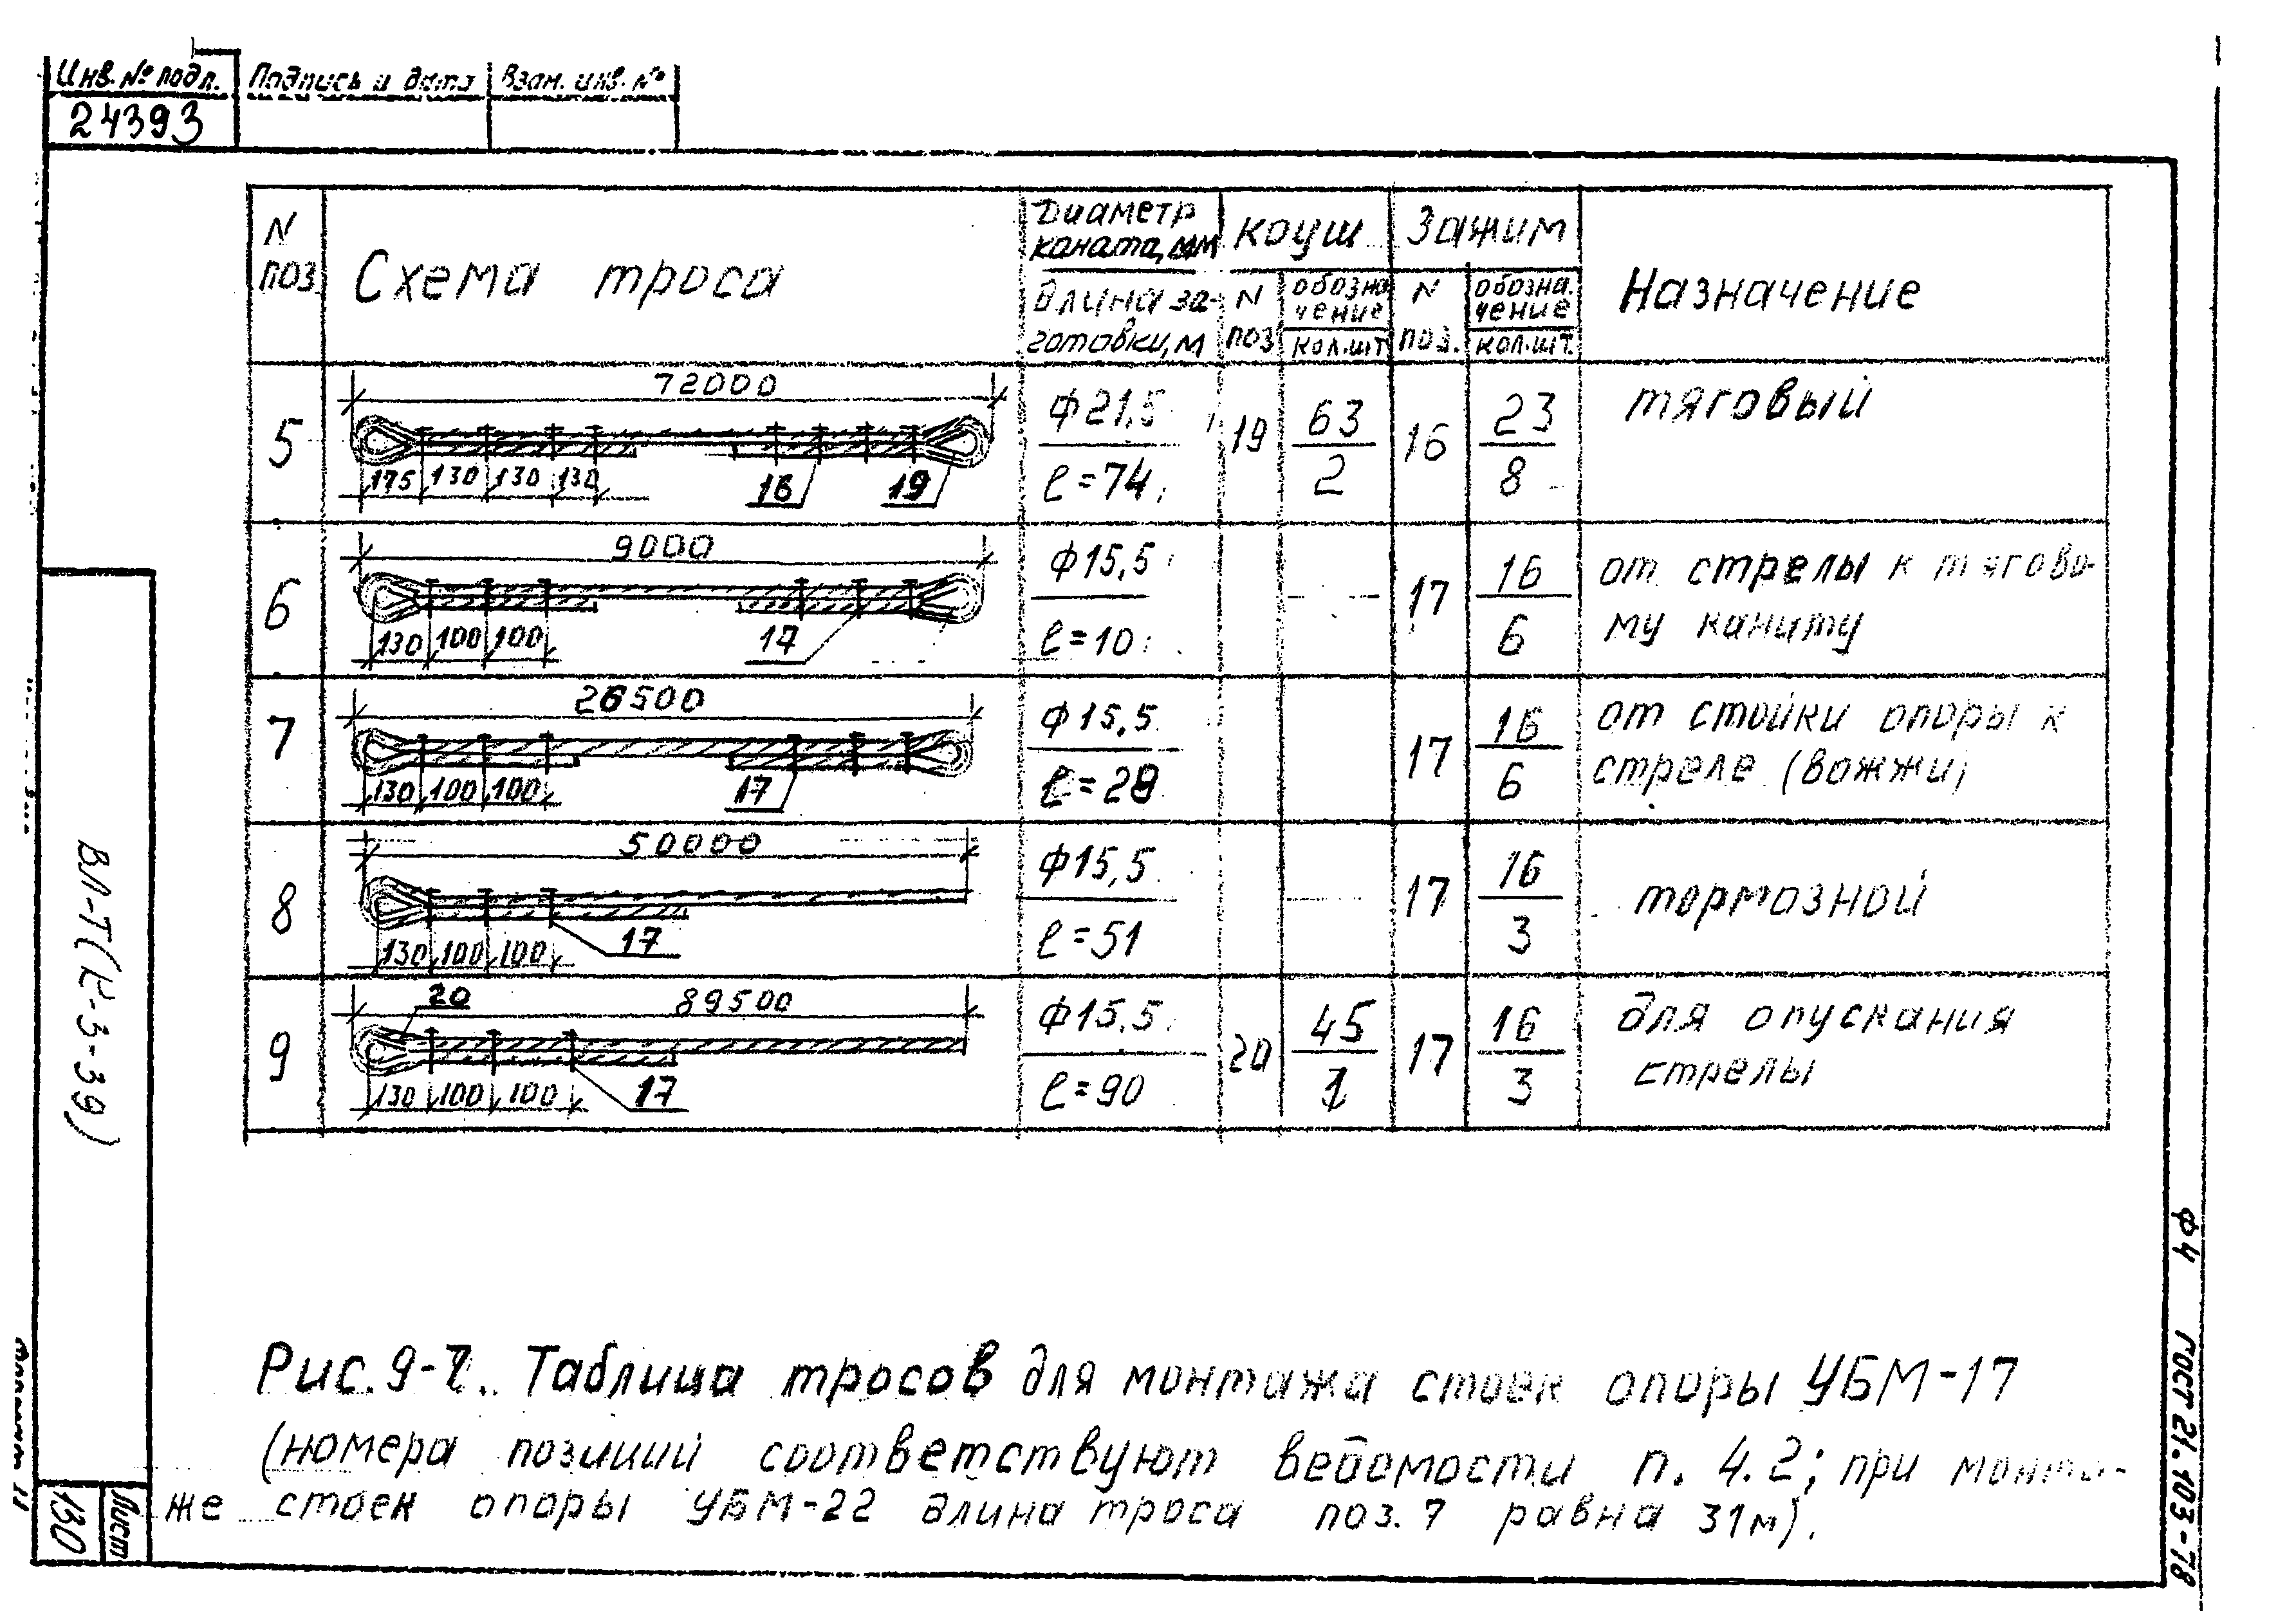 Инв. № подл. Подпись и дата Взам. инв. №
24393
N поз.
Схема троса
Диаметр каната, мм
Длина заготовки, м
коуш
N поз.
обозначение
кол.шт
Зажим
N поз.
обозна.чение
кол.шт.
Назначение
5
72000
175 130 130 130
16 19
ф21,5
ℓ=74
19
63
2
16
23
8
тяговый
6
9000
130 100 100
17
ф15,5
ℓ=10
17
16
6
от стрелы к тягово-
му канату
7
26500
130 100 100
17
ф15,5
ℓ=28
17
16
6
от стойки опоры к
стреле (вожжи)
8
50000
130 100 100
17
ф15,5
ℓ=51
17
16
3
тормозной
9
20 89500
130 100 100
17
ф15,5
ℓ=90
20
45
1
17
16
3
для опускания
стрелы
Рис. 9-7. Таблица тросов для монтажа стоек опоры УБМ-17
(номера позиций соответствуют ведомости п. 4.2; при монта-
же стоек опоры УБМ-22 длина троса поз. 7 равна 31м).
ВЛ-Т(К-3-39)
Лист
130
ф4 ГОСТ 21.103-78